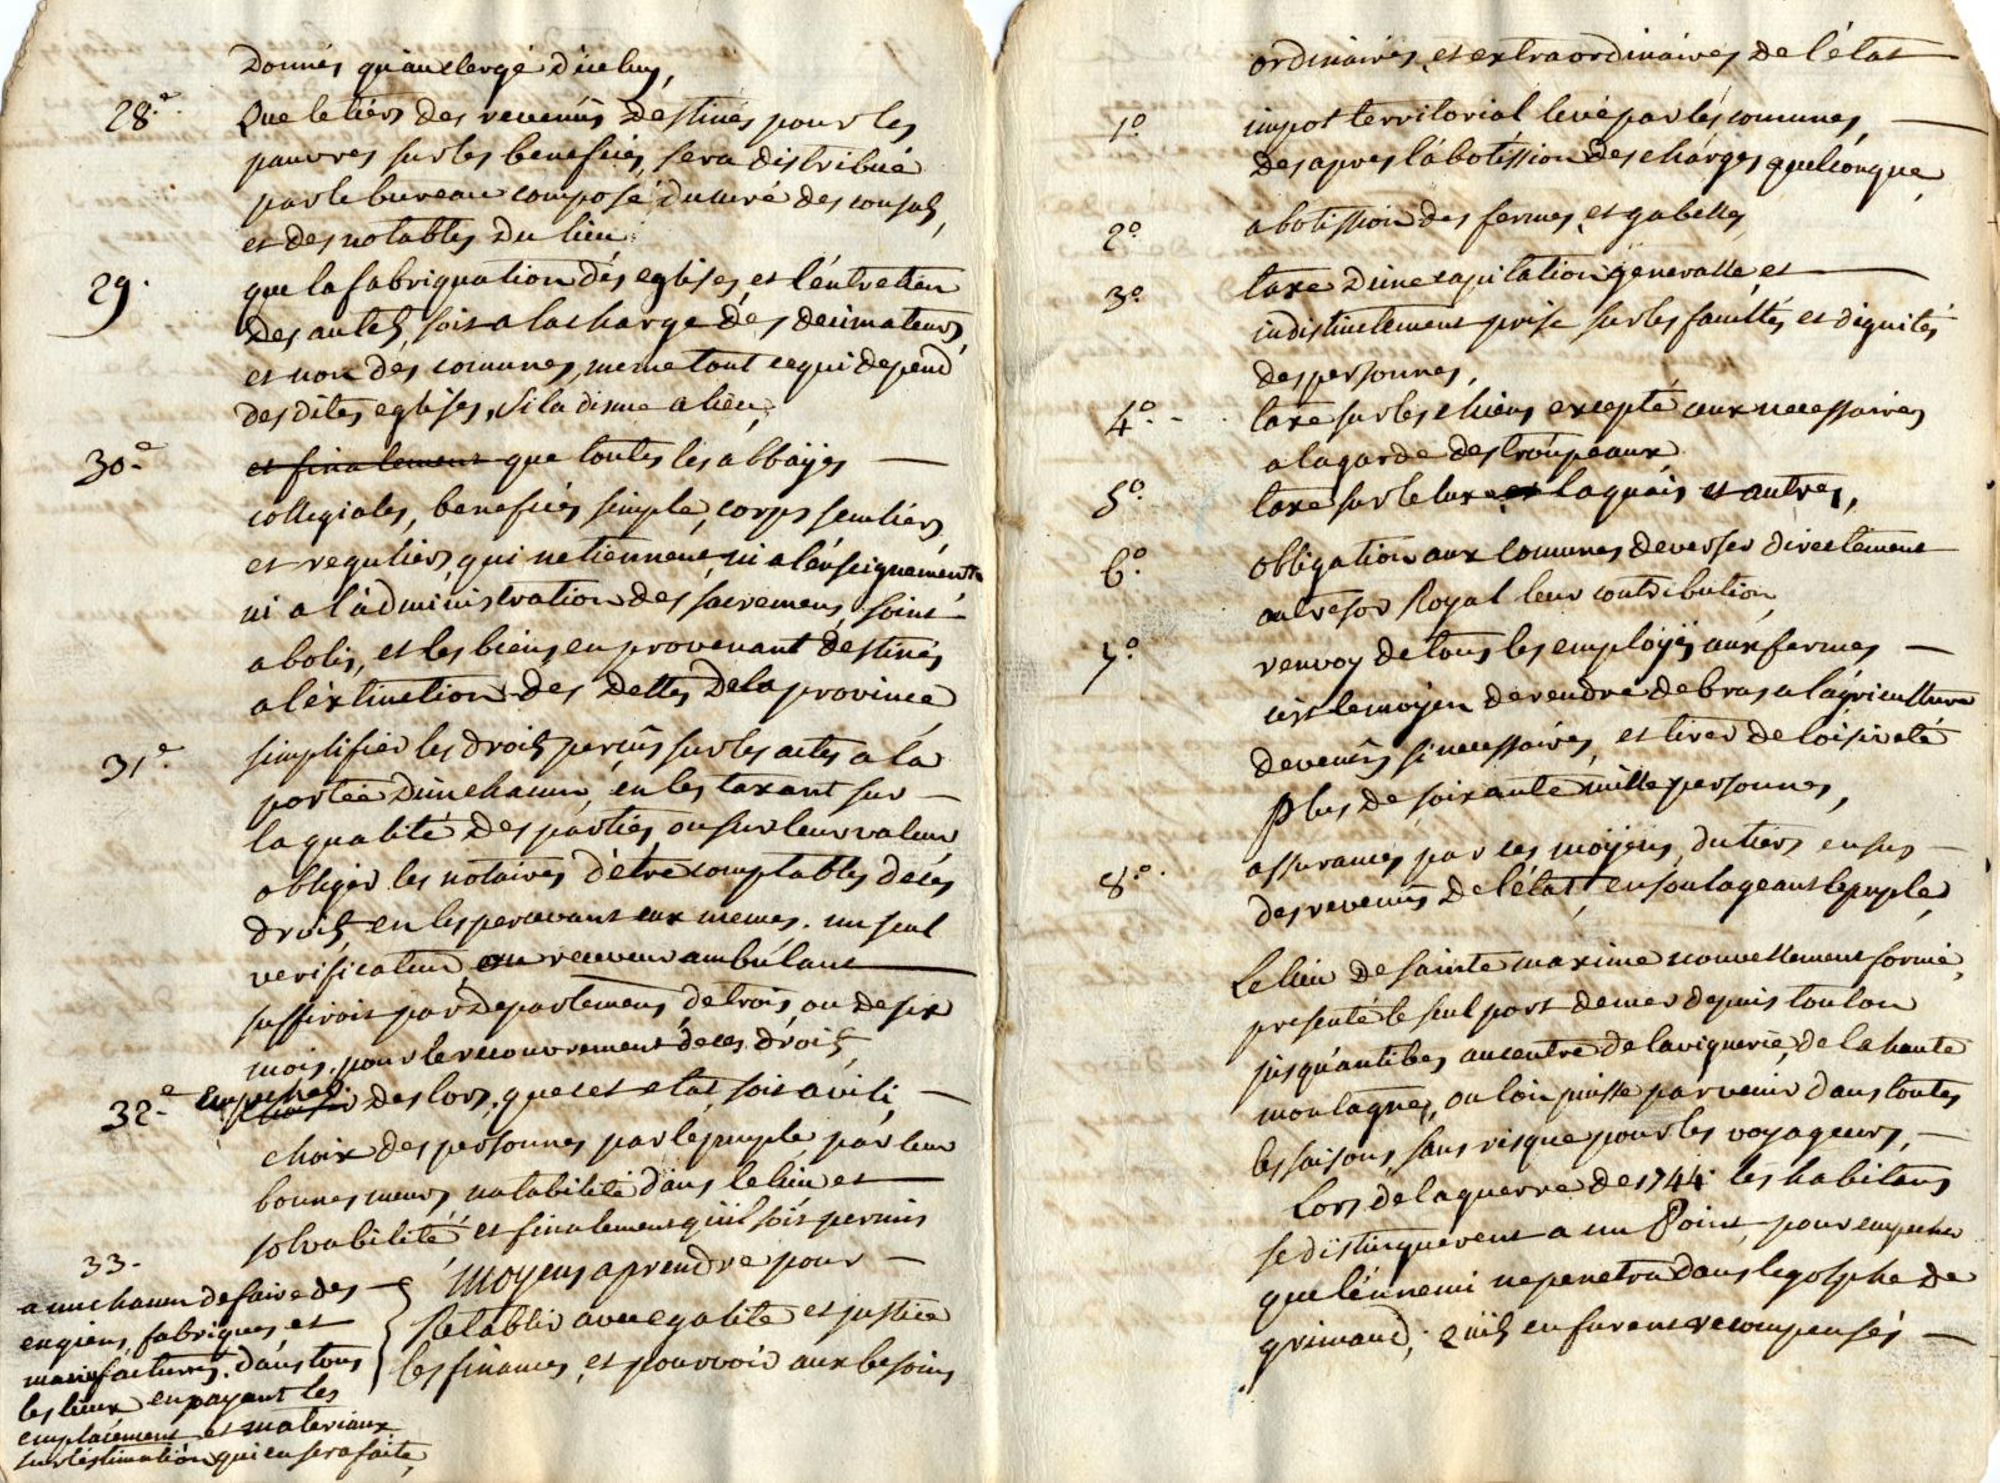 Donnés qu'au clergé d'iceluy,
28.e Que le tiérs des revenûs destinés pour les
pauvres sur les benefices, sera distribué
par le bureau composé, du curé des consuls,
et des notables du lieu.
29. que la fabriquation dés eglises, et l'éntretien
des autels, soit a la charge dés decimateurs,
et non dés comunes, meme tout ce qui depend
des dites eglises, si la disme a lieu,
30.e et finalement que toutes les abbaÿes —
collegiales, benefices simple, corps seculiers
et reguliers, qui ne tiennent, ni a l'énseignement
ni a l'administration des sacremens, soint
abolis, et les biens en provenant destinés
a l'éxtinction des dettes de la province
31.e simplifier les droits perçûs sur les actes a la
portée d'un chacun, en les taxant sur —
la qualité des partiés, ou sur leur valeur
obliger les notaires d'étre comptables de ces
droits, en les percevant eux memes. un seul
verificateur, ou receveur ambulant
suffiroit par departemens, de trois, ou de six
mois, pour le recouvrement de ces droits,
32.e Empecher des lors, que cet etat, soit avili, —
choix des personnes par le peuple, par leur
bonnes meurs, notabilité dans le lieu et
solvabilité et finalement qu'il soit permis
33.
a un chacun de faire des
engiens, fabriques, et
manifactures. dans tous
les lieux en payant les
emplaiement et materiaux
sur l'éstimation qui en sera faite,
Moyens a prendre pour —
Retablir avec egalité et justice
les finances, et pourvoir aux besoins
ordinaires, et extraordinaires de l'état
1.o impot territorial levé par lés comunes, —
des apres l'abolission des charges quelconque,
2.o abolission des fermes, et gabelles,
3.o taxe d'une capitation generalle, et
indistinctement prise sur les facultés et dignités
des personnes,
4.o taxe sur les chiens excepté ceux necessaires
a la garde des troupeaux
5.o taxe sur le luxe et laquais et autres,
6.o obligation aux comunes de verser directement
au tresor Royal leur contribution,
7.o renvoy de tous les employés aux fermes —
c'est le moÿen de rendre de bras a l'agriculture
devenûs si necessaires, et tirer de l'oisiveté
plus de soixante mille personnes,
8.o assurances par ces moÿens, du tiers en sus —
des revenûs de l'état, en soulageant le peuple,
Le lieu de sainte maxime nouvellement formé,
presenté le seul port de mer depuis toulon
jusqu'antibes, au centre de la viguerie, de la haute
montagne, ou l'on puisse parvenir dans toutes
les saisons, sans risque pour les voyageurs, —
Lors de la guerre de 1744. les habitans
se distinguerent a un Point, pour empecher
que l'énnemi ne penetra dans le golphe de
grimaud, qu'ils en furent recompensés —